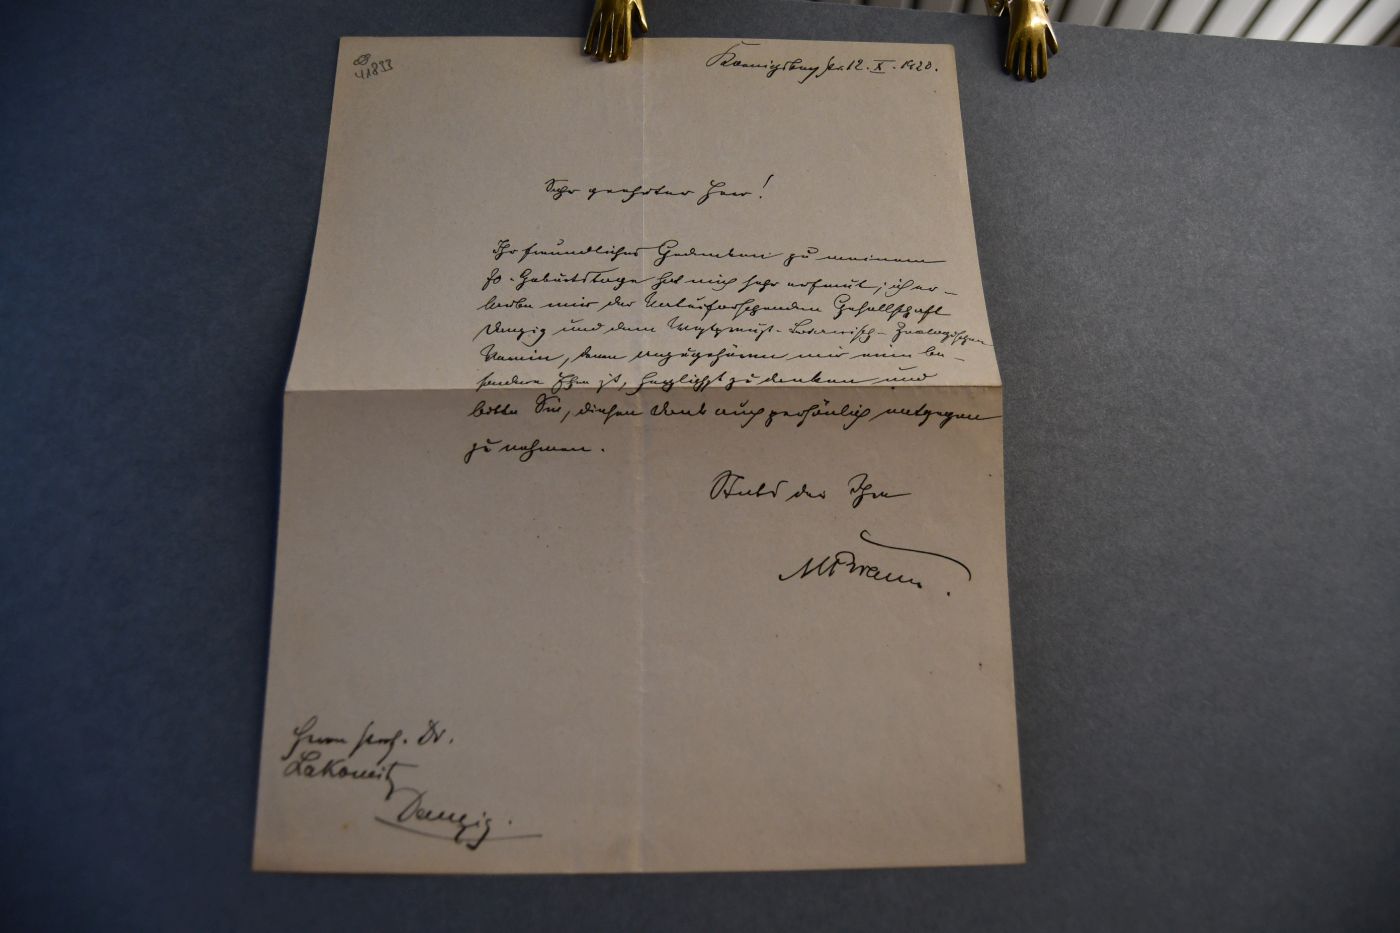 41833
Koenigsberg Pr. 12. X. 1920.
Sehr geehrter Herr!
Ihr freundliches Gedenken zu meinem
70. Geburtstage hat mich sehr erfreut; ich er-
laube mir der Naturforschenden Gesellschaft
Danzig und dem Westpreuß. Botanisch-Zoologischen
Verein, denen anzugehören mir eine be-
sondere Ehre ist, herzlichst zu danken und
bitte Sie, diesen Dank auch persönlich entgegen
zu nehmen.
Stets der Ihre
M Braun.
Herrn Prof. Dr.
Lakowitz
Danzig.